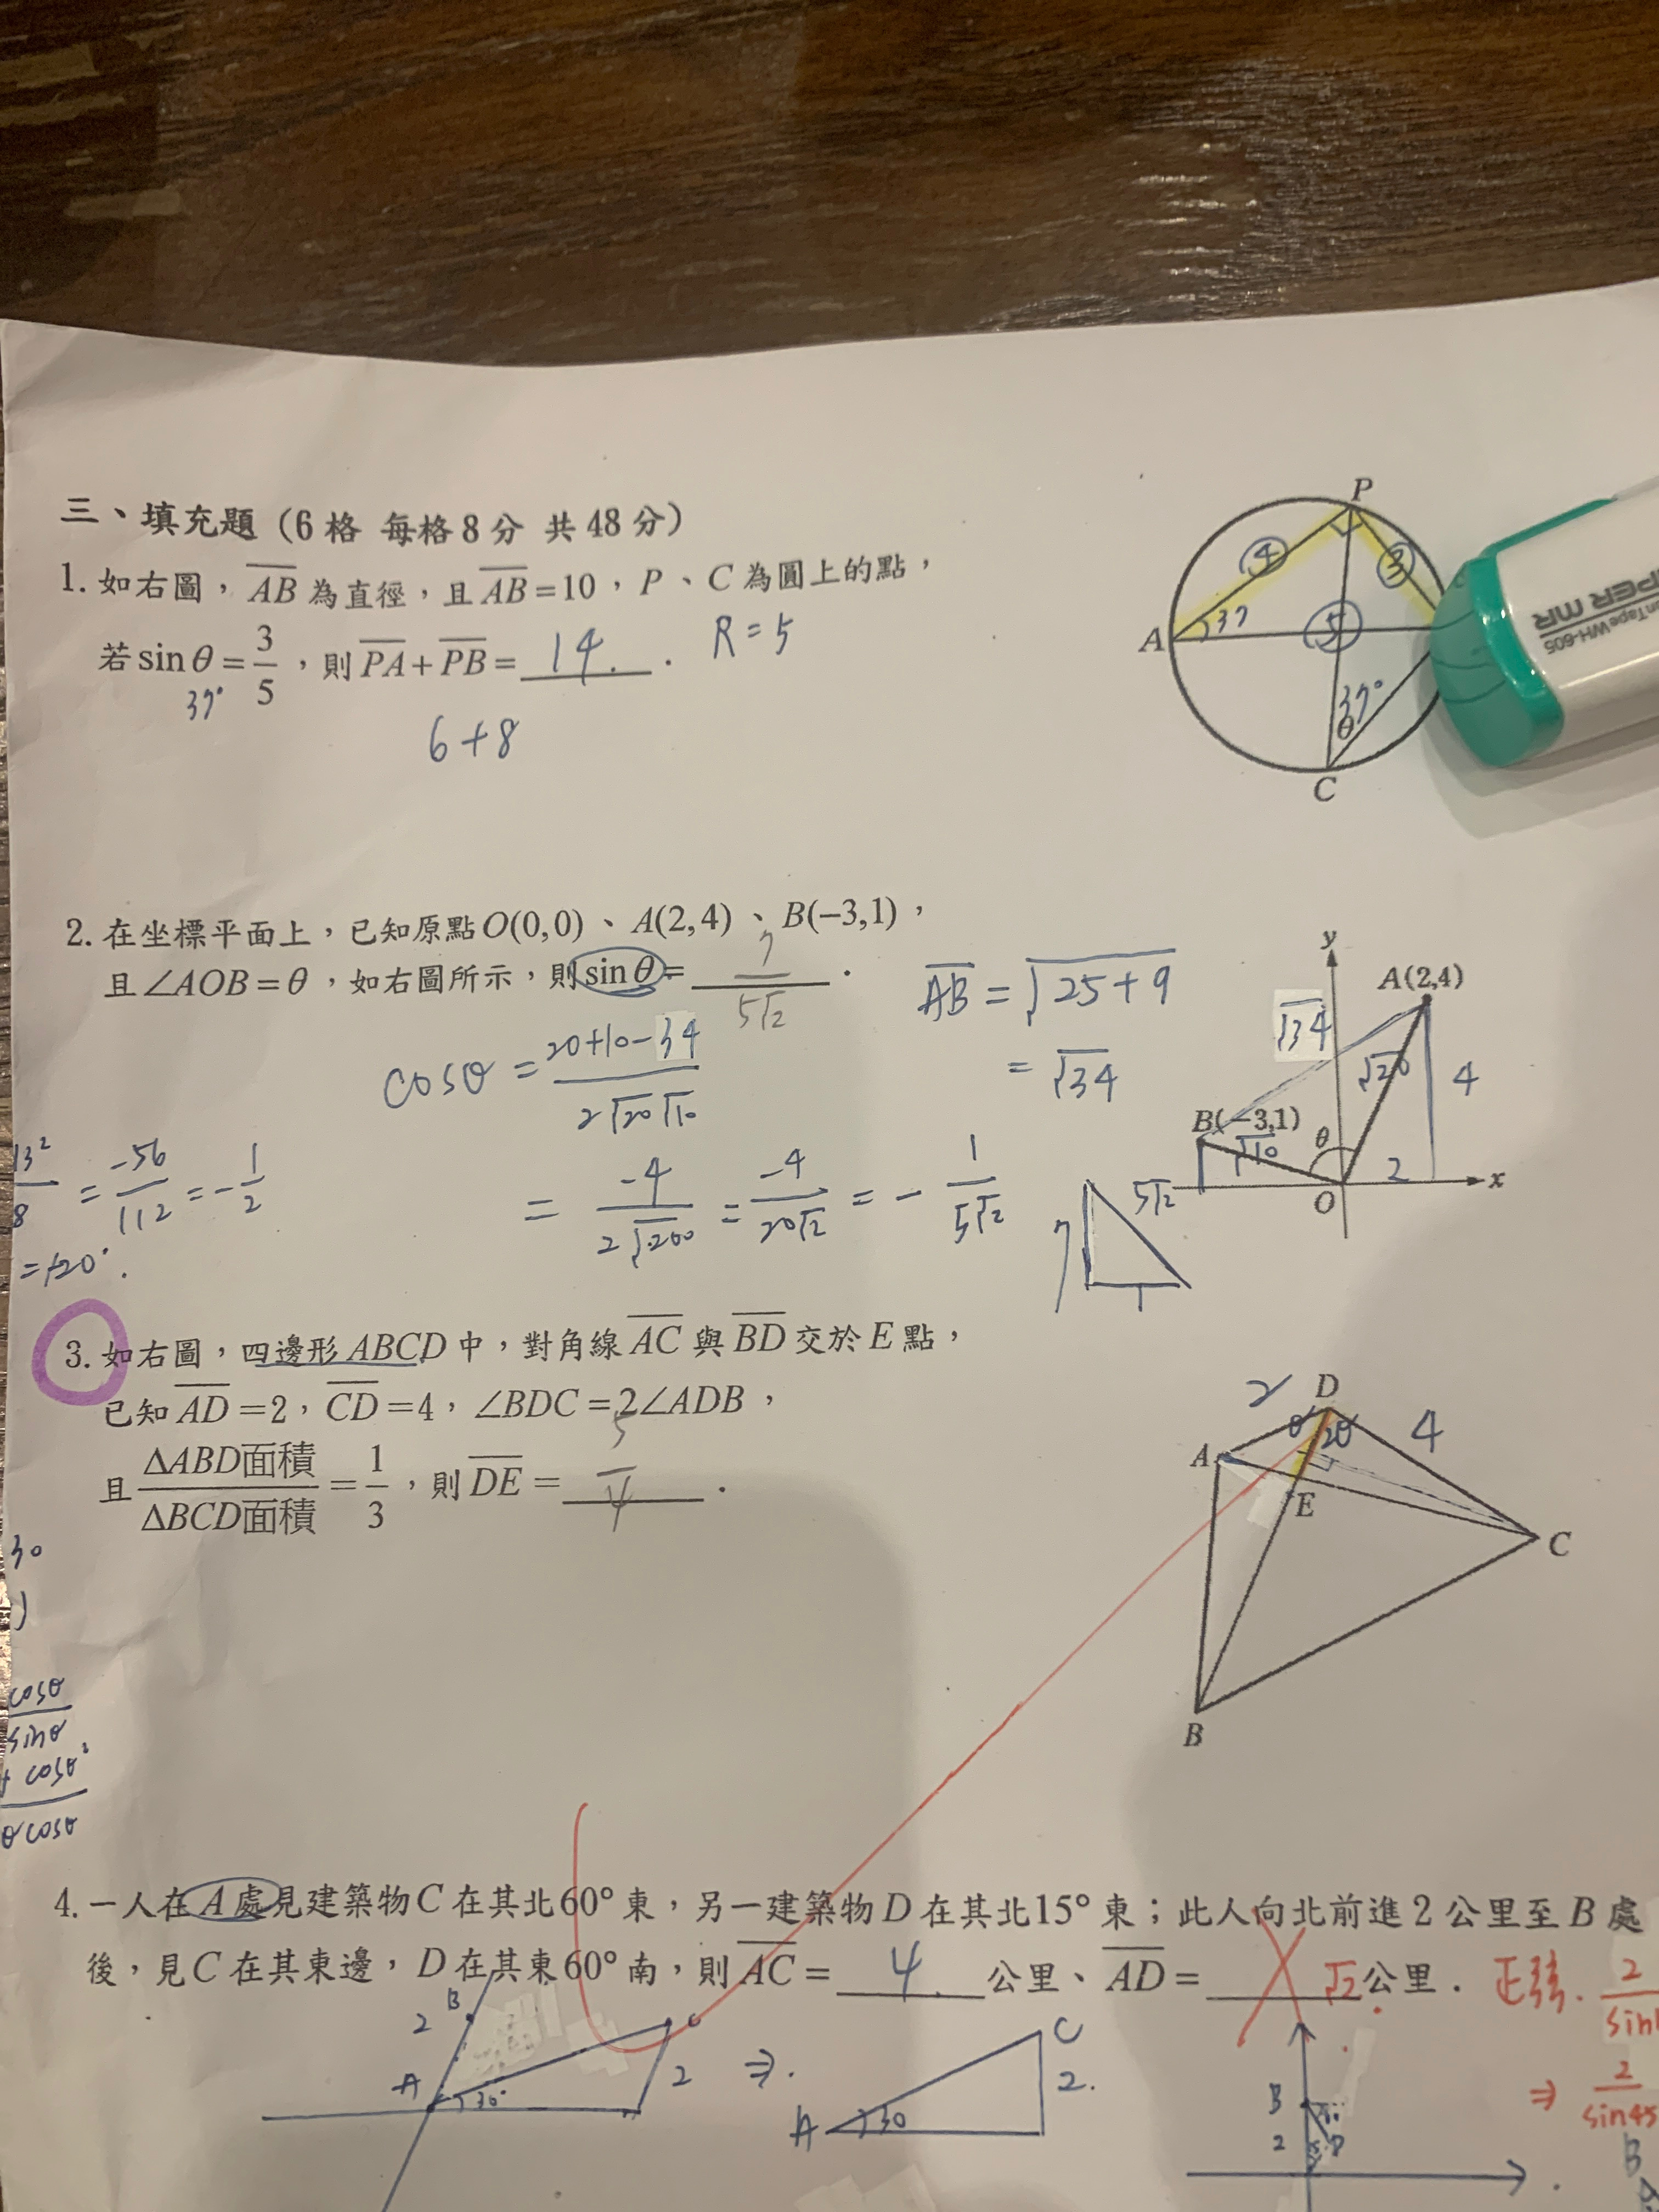 三、填充題（6格 每格8分 共48分）
1. 如右圖，AB為直徑，且AB=10，P、C為圓上的點，
若 sinθ = 3/5，則PA+PB= 14 .
R=5
37°
6+8
P
④
③
A
37
⑤
37°
θ
C
WH-605
2. 在坐標平面上，已知原點O(0,0)、A(2,4)、B(−3,1)，
且∠AOB=θ，如右圖所示，則 sinθ = 7/5√2 .
AB = √25+9
= √34
cosθ = 20+10-34 / 2√20√10
= -4/2√200 = -4/20√2 = - 1/5√2
7
5√2
1
y
A(2,4)
√34
√20
4
B(−3,1)
√10
θ
2
O
x
13²/8 = -56/112 = -1/2
= 120°.
3. 如右圖，四邊形ABCD中，對角線AC與BD交於E點，
已知AD=2，CD=4，∠BDC=2∠ADB，
且 ΔABD面積/ΔBCD面積 = 1/3，則DE= 5/4 .
2
D
θ
2θ
4
A
E
C
B
30
)
cosθ
sinθ
+ cosθ²
θcosθ
4. 一人在A處見建築物C在其北60°東，另一建築物D在其北15°東；此人向北前進2公里至B處
後，見C在其東邊，D在其東60°南，則AC= 4 公里、AD= √2 公里．
正弦.
2
⇒ 2/sin45
B
2
A
30°
C
2
⇒.
C
2.
A
30
B
2
D
B